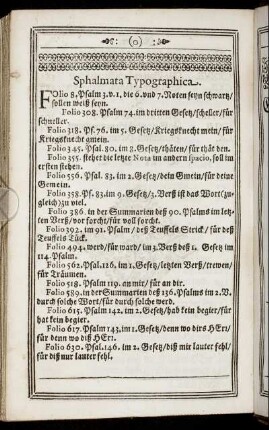 (o)
Sphalmata Typographica.
Folio 8. Psalm 3. v. 1. die 6. vnd 7. Noten seyn schwartz/
sollen weiß seyn.
Folio 308. Psalm 74. im dritten Gesetz/scheller/für
schneller.
Folio 318. Pf. 76. im 5. Gesetz/Kriegsknecht mein/für
Kriegsknecht gmein.
Folio 345. Psal. 80. im 8. Gesetz/thäten/für thät den.
Folio 355. stehet die letzte Nota im andern spacio, soll im
ersten stehen.
Folio 356. Psal. 83. im 2. Gesetz/dein Gmein/für deine
Gemein.
Folio 358. Pf. 83. im 9. Gesetz/3. Verß ist das Wort (zu-
gleich) zu viel.
Folio 386. in der Summarien deß 90. Psalms im letz-
ten Verß/vor forcht/für voll forcht.
Folio 392. im 91. Psalm / deß Truffels Strick / für deß
Teuffels Tück.
Folio 494. werd/für ward/im 3. Verß deß 1. Gesetz im
114. Psalm.
Folio 562. Psal. 126. im 1. Gesetz/letzten Verß/trewen/
für Träumen.
Folio 518. Psalm 119. an mir/für an dir.
Folio 589. in der Summarten deß 136. Psalms im 2. V.
durch solche Wort/für durch solche werd.
Folio 615. Psalm 142. im 2. Gesetz/hab kein begier/für
hat kein begier.
Folio 617. Psalm 143. im 1. Gesetz/denn wo dirs HErr/
für denn wo diß HErr.
Folio 630. Psal. 146. im 2. Gesetz/diß mir lauter fehl/
für diß nur lauter fehl.